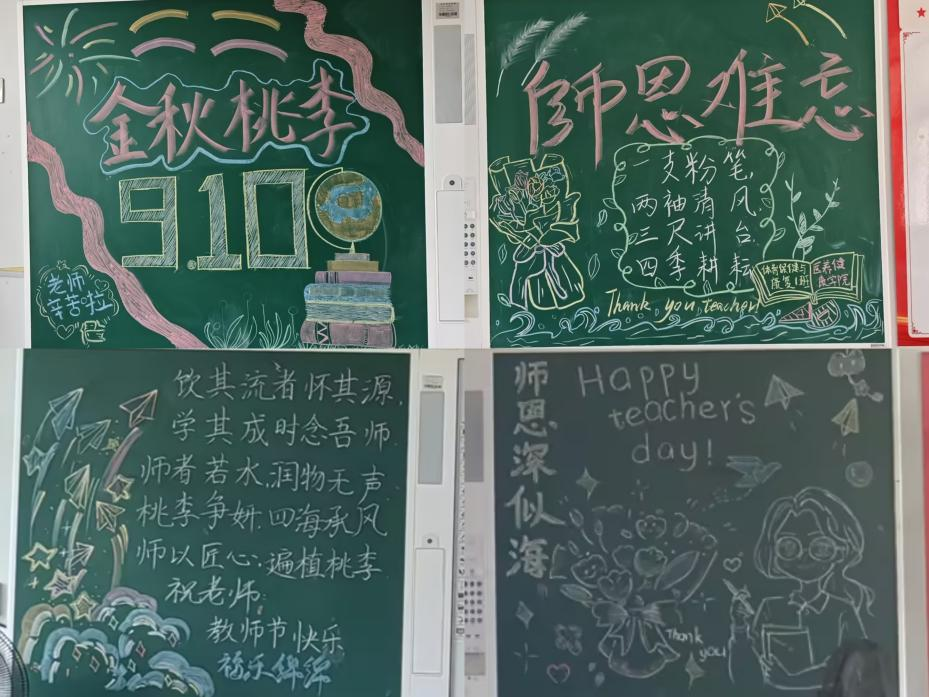 金秋桃李
9.10
老师
辛苦啦
師恩难忘
一支粉笔
两袖清风
三尺讲台
四季耕耘
Thank you,teacher
体育保健与
康复1班
医养健
康学院
饮其流者怀其源,
学其成时念吾师
师者若水,润物无声
桃李争妍,四海承风
师以匠心,遍植桃李
祝老师:
教师节快乐
福乐绵绵
师恩深似海
Happy
teacher's
day!
Thank
you!